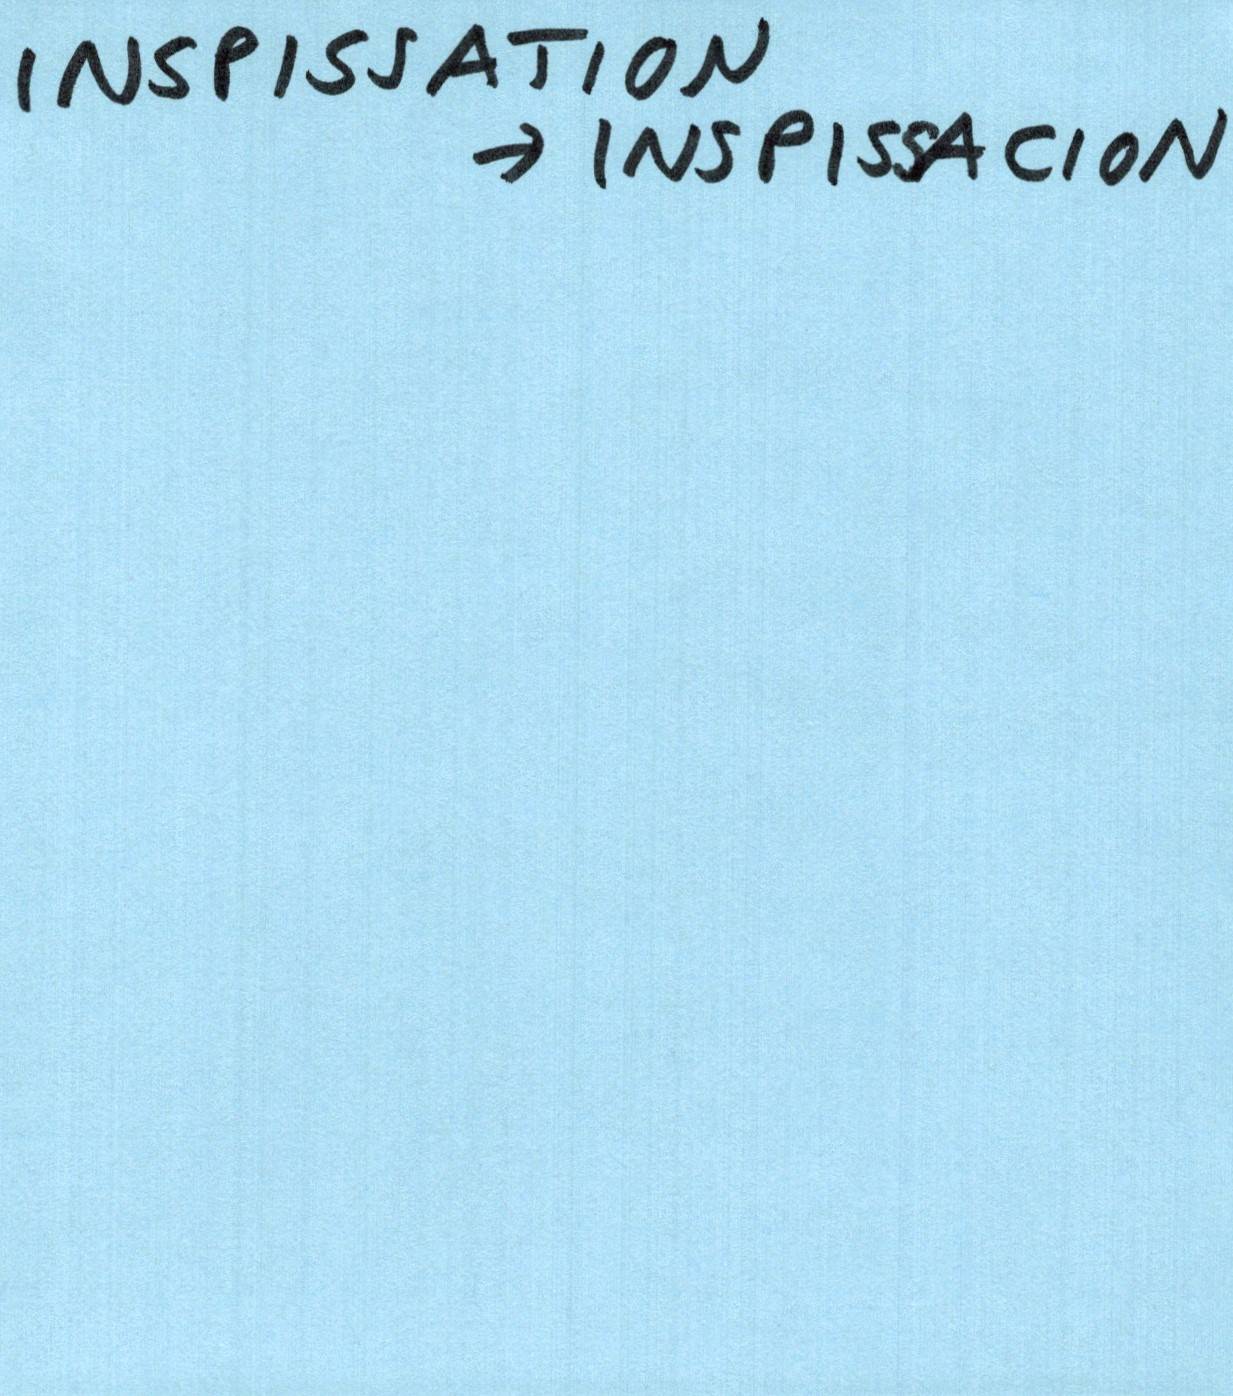 INSPISSATION
→ INSPISSACION